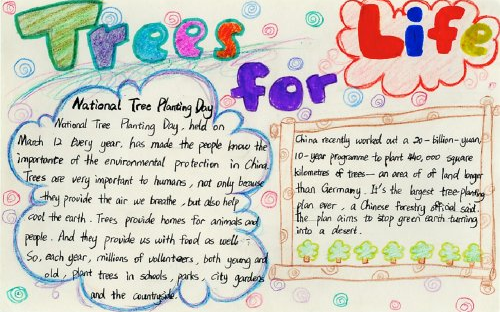 Trees
for
Life
National Tree Planting Day
National Tree Planting Day, held on
March 12 Every year, has made the people know the
importance of the environmental protection in China.
Trees are very important to humans, not only because
they provide the air we breathe, but also help
cool the earth. Trees provide homes for animals and
people. And they provide us with food as well.
So, each year, millions of volunteers, both young and
old, plant trees in schools, parks, city gardens
and the countryside.
China recently worked out a 20-billion-yuan,
10-year programme to plant 440,000 square
kilometres of trees—an area of land longer
than Germany. It's the largest tree-planting
plan ever, a Chinese forestry official said.
The plan aims to stop green earth turning
into a desert.